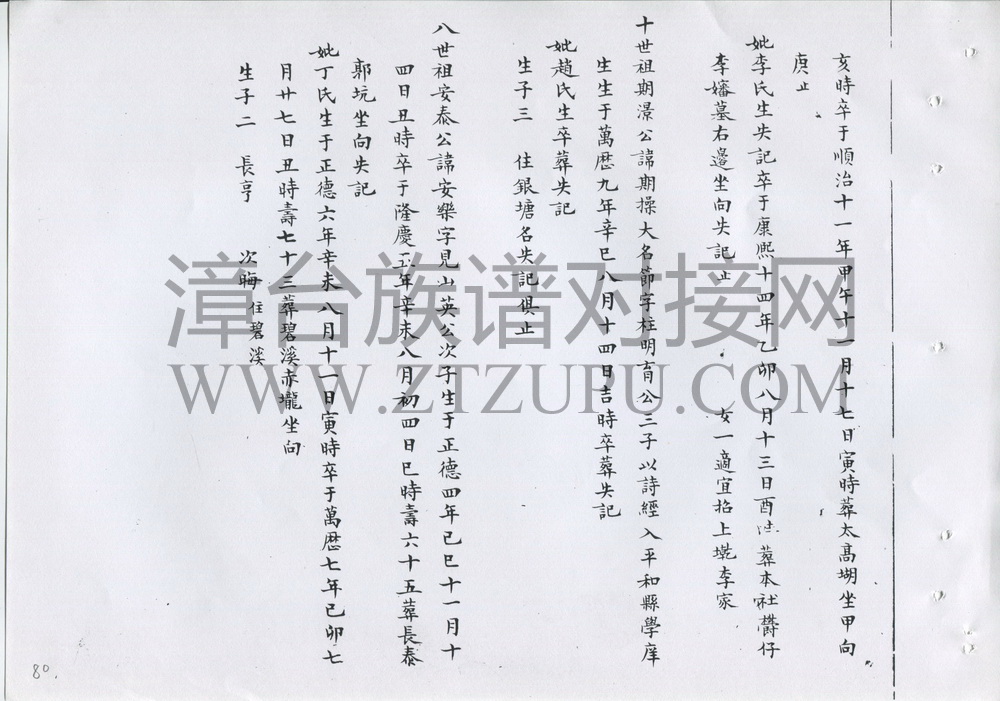 亥時卒于順治十一年甲午十一月十七日寅時葬太高埔坐甲向
庚止
妣李氏生失記卒于康熙十四年乙卯八月十三日酉時葬本社欝仔
李嬸墓右邊坐向失記止 女一適宜招上墘李家
十世祖期濎公諱期操大名節字柱明育公三子以詩經入平和縣學庠
生生于萬曆九年辛巳八月十四日吉時卒葬失記
妣趙氏生卒葬失記
生子三 住銀塘名失記俱止
八世祖安泰公諱安樂字見山英公次子生于正德四年己巳十一月十
四日丑時卒于隆慶五年辛未八月初四日巳時壽六十五葬長泰
郭坑坐向失記
妣丁氏生于正德六年辛未八月十一日寅時卒于萬曆七年己卯七
月廿七日丑時壽七十三葬碧溪赤壠坐向
生子二 長亨 次晦住碧溪
80.
漳台族谱对接网
WWW.ZTZUPU.COM